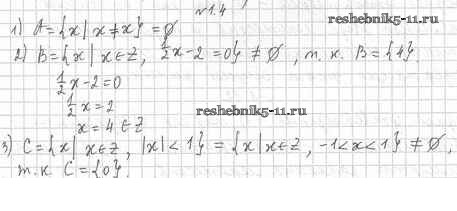 №1.4
1) A={x | x≠x}=∅
reshebnik5-11.ru
2) B={x | x∈Z, 1/2x-2=0}≠∅, т.к. B={4}.
1/2x-2=0
1/2x=2
reshebnik5-11.ru
x=4∈Z
3) C={x | x∈Z, |x|<1}={x | x∈Z, -1<x<1}≠∅,
т.к C={0}.